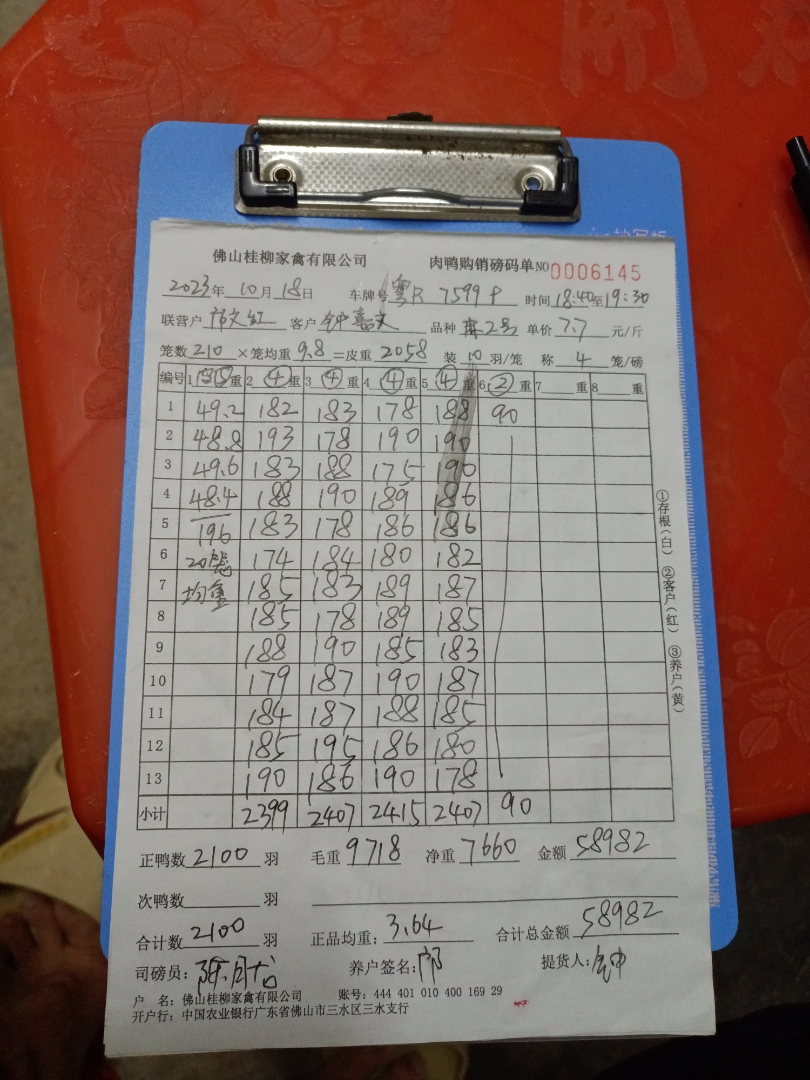 佛山桂柳家禽有限公司 肉鸭购销磅码单 NO 0006145
2023年 10月 18日 车牌号 粤R 7599P 时间 18:40至19:30
联营户 客户 钟嘉文 品种 单价 7.7 元/斤
笼数 210 ×笼均重 9.8 =皮重 2058 装 10 羽/笼 称 4 笼/磅
编号 1 重 2 ④ 重 3 ④ 重 4 ④ 重 5 ④ 重 6 ② 重 7 重 8 重
1 49.2 182 183 178 188 90
2 48.8 193 178 190 190
3 49.6 183 188 175 190
4 48.4 188 190 189 186
5 196 183 178 186 186
6 20笼 174 184 180 182
7 均重 185 183 189 187
8 185 178 189 185
9 188 190 185 183
10 179 187 190 187
11 184 187 188 185
12 185 195 186 180
13 190 186 190 178
小计 2399 2407 2415 2407 90
①存根(白) ②客户(红) ③养户(黄)
正鸭数 2100 羽 毛重 9718 净重 7660 金额 58982
次鸭数 羽
合计数 2100 羽 正品均重: 3.64 合计总金额 58982
司磅员: 养户签名: 提货人:
户 名: 佛山桂柳家禽有限公司 账号: 444 401 010 400 169 29
开户行: 中国农业银行广东省佛山市三水区三水支行